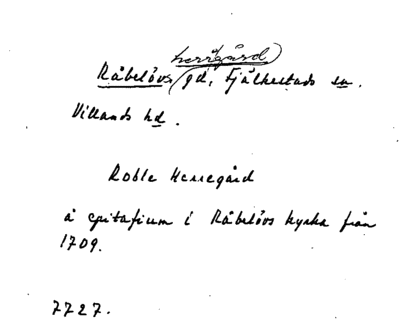 herrgård
Råbelövs gd, Fjälkestads sn.
Villands hd.
Roble Herregård
å epitafium i Råbelövs kyrka från
1709.
7727.